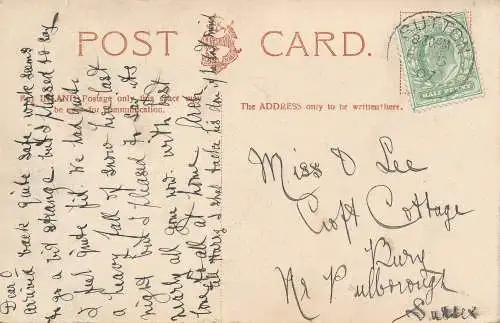 POST CARD.
FOR INLAND Postage only this space may
be used for Communication.
The ADDRESS only to be written here.
SUTTON
HALF PENNY
Dear D
arrived back quite safe work seems
to go a bit strange but I pleased to say
I feel quite fit. We had quite
a heavy fall of snow here last
night but I pleased to say its
nearly all gone now. with best
love to all at home from
Miss D Lee
Croft Cottage
Bury
Nr Pulborough
Sussex